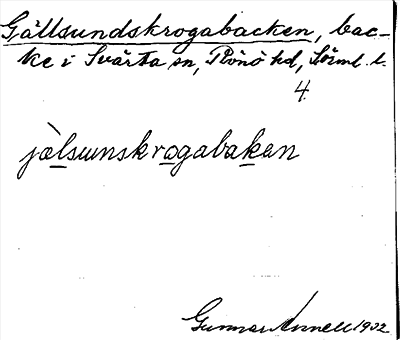 Gällsundskrogabacken, bac-
ke i Svärta sn, Rönö hd, Sörml. l.
4.
jälsunskrogabakan
Gunnar Annell 1932